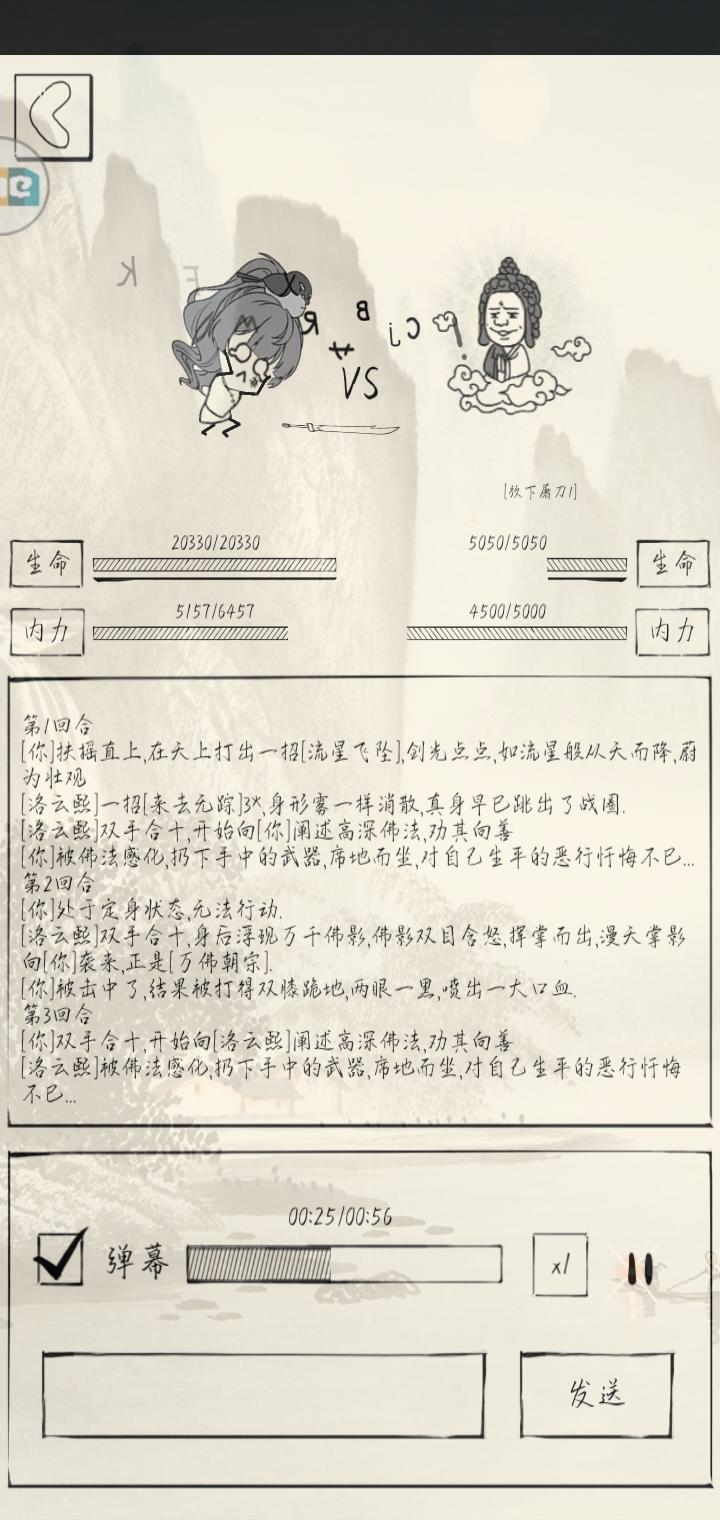 K
F
R
B
j
C
VS
[放下屠刀1]
20330/20330
5050/5050
生命
生命
5157/6457
4500/5000
内力
内力
第1回合
[你]扶摇直上,在天上打出一招[流星飞坠],剑光点点,如流星般从天而降,蔚
为壮观
[洛云熙]一招[来去无踪]3*,身形雾一样消散,真身早已跳出了战圈.
[洛云熙]双手合十,开始向[你]阐述高深佛法,劝其向善
[你]被佛法感化,扔下手中的武器,席地而坐,对自己生平的恶行忏悔不已...
第2回合
[你]处于定身状态,无法行动.
[洛云熙]双手合十,身后浮现万千佛影,佛影双目含怒,挥掌而出,漫天掌影
向[你]袭来,正是[万佛朝宗].
[你]被击中了,结果被打得双膝跪地,两眼一黑,喷出一大口血.
第3回合
[你]双手合十,开始向[洛云熙]阐述高深佛法,劝其向善
[洛云熙]被佛法感化,扔下手中的武器,席地而坐,对自己生平的恶行忏悔
不已...
00:25/00:56
弹幕
x1
发送